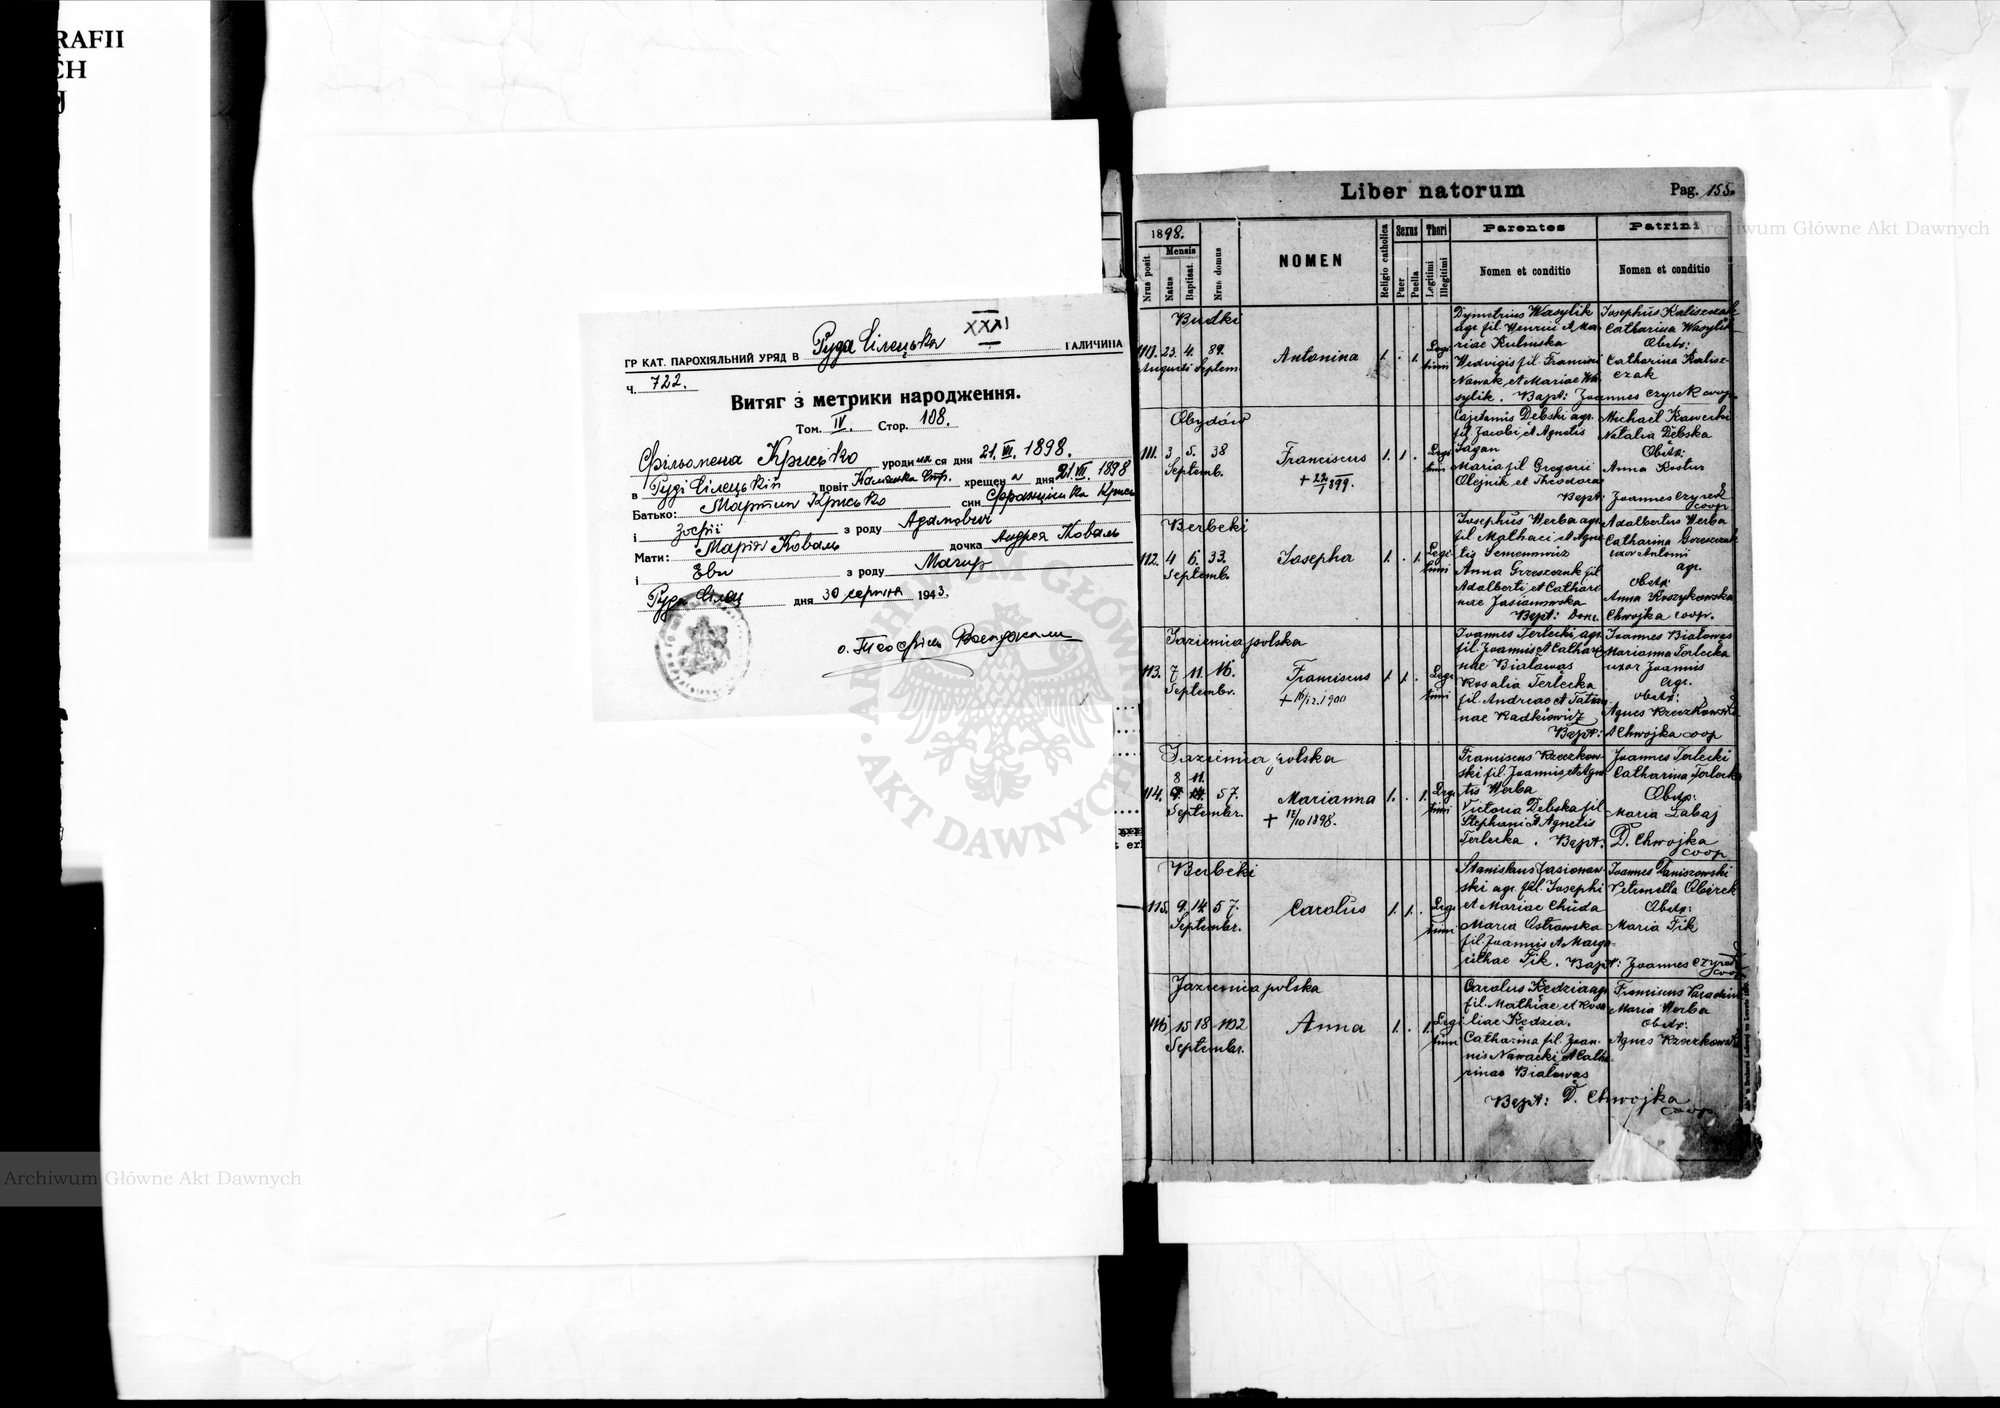 RAFII
CH
J
XXXI
ГР КАТ. ПАРОХІЯЛЬНИЙ УРЯД В Руда Сілецька ГАЛИЧИНА
Ч. 722.
Витяг з метрики народження.
Том. IV. Стор. 108.
Фільомена Крисько уродилася дня 21. VII. 1898.
в Руді Сілецькій повіт Камянка Стр. хрещена дня 21. VII. 1898
Батько: Мартин Крисько син Францішка Крись
і Зофії з роду Адамович
Мати: Марія Коваль дочка Андрея Коваль
і Еви з роду Мачир
Руда Сілец дня 30 серпня 1943.
о. Теофіль
Liber natorum Pag. 155.
1898.
Nrus posit.
Mensis
Natus
Baptisat.
Nrus domus
NOMEN
Religio catholica
Sexus
Puer
Puella
Thori
Legitimi
Illegitimi
Parentes
Nomen et conditio
Patrini
Nomen et conditio
Budki
110. 23. 4. 89.
Augusti Septem.
Antonina
1. . 1.
Legi
timi
Dymetrius Wasylik
agr. fil. Henrici et Ma
riae Kulmska
Hedvigis fil. Francisci
Nowak et Mariae Wa
sylik. Bapt: Joannes Czyrek coop.
Josephus Kaliszczak
Catharina Wasylik
Obstr:
Catharina Kalisz
czak
Obydów
111. 3 5. 38
Septemb.
Franciscus
+ 22/1 899.
1. 1 .
Legi
timi
Cajetanus Dębski agr.
fil. Jacobi et Agnetis
Sagan
Maria fil Gregorii
Olejnik et Theodora
Bapt: Joannes Czyrek
coop
Michaël
Natalia Dębska
Obstr:
Anna Kostur
Berbeki
112. 4 6. 33.
Septemb.
Josepha
1. . 1.
Legi
timi
Josephus Werba agr.
fil Mathaei et Agne
tis Semenowicz
Anna Grzeszczuk fil
Adalberti et Cathari
nae Jasianowska
Bapt: Dom.
Adalbertus Werba
Catharina
uxor Antonii
agr.
Obstr:
Anna Koszykowska
Chwojka coop.
Jazienica polska
113. 7 11. 16.
Septembr.
Franciscus
+ 16/12.1900
1 1. .
Legi
timi
Joannes Terlecki agr.
fil. Joannis et Cathari
nae Białowas
Rosalia Terlecka
fil. Andreae et Tatia
nae Radkiewicz
Bapt: Chwojka coop
Joannes Białowas
Marianna Terlecka
uxor Joannis
agr.
Obstr:
Agnes Kreczkowska
Jazienica polska
8 11.
114. 57.
Septembr.
Marianna
+ 12/10 1898.
1. . 1.
Legi
timi
Franciscus Kreczkow-
ski fil. Joannis et Agne
tis Werba
Victoria Dębska fil
Stephani et Agnetis
Terlecka. Bapt: D. Chwojka
coop
Joannes Terlecki
Catharina Terlecka
Obstr:
Maria Labaj
Berbeki
115. 9. 14. 57.
Septembr.
Carolus
1. 1. .
Legi
timi
Stanislaus Jasionow-
ski agr. fil. Josephi
et Mariae Chuda
Maria Ostrowska
fil. Joannis et Marga-
rithae Fik. Bapt: Joannes Czyrek
coop
Joannes Daniszowski
Petronella Obirek
Obstr:
Maria Fik
Jazienica polska
116. 15 18 102
Septembr.
Anna
1. . 1.
Legi
timi
Carolus Kędzia agr
fil. Mathiae et Rosa
liae Kędzia.
Catharina fil. Joan-
nis Nawacki et Catha-
rinae Białowas
Bapt: D. Chwojka
coop
Franciscus
Maria Werba
Obstr:
Agnes Kreczkowska
Archiwum Główne Akt Dawnych
Archiwum Główne Akt Dawnych
ARCHIWUM GŁÓWNE
AKT DAWNYCH